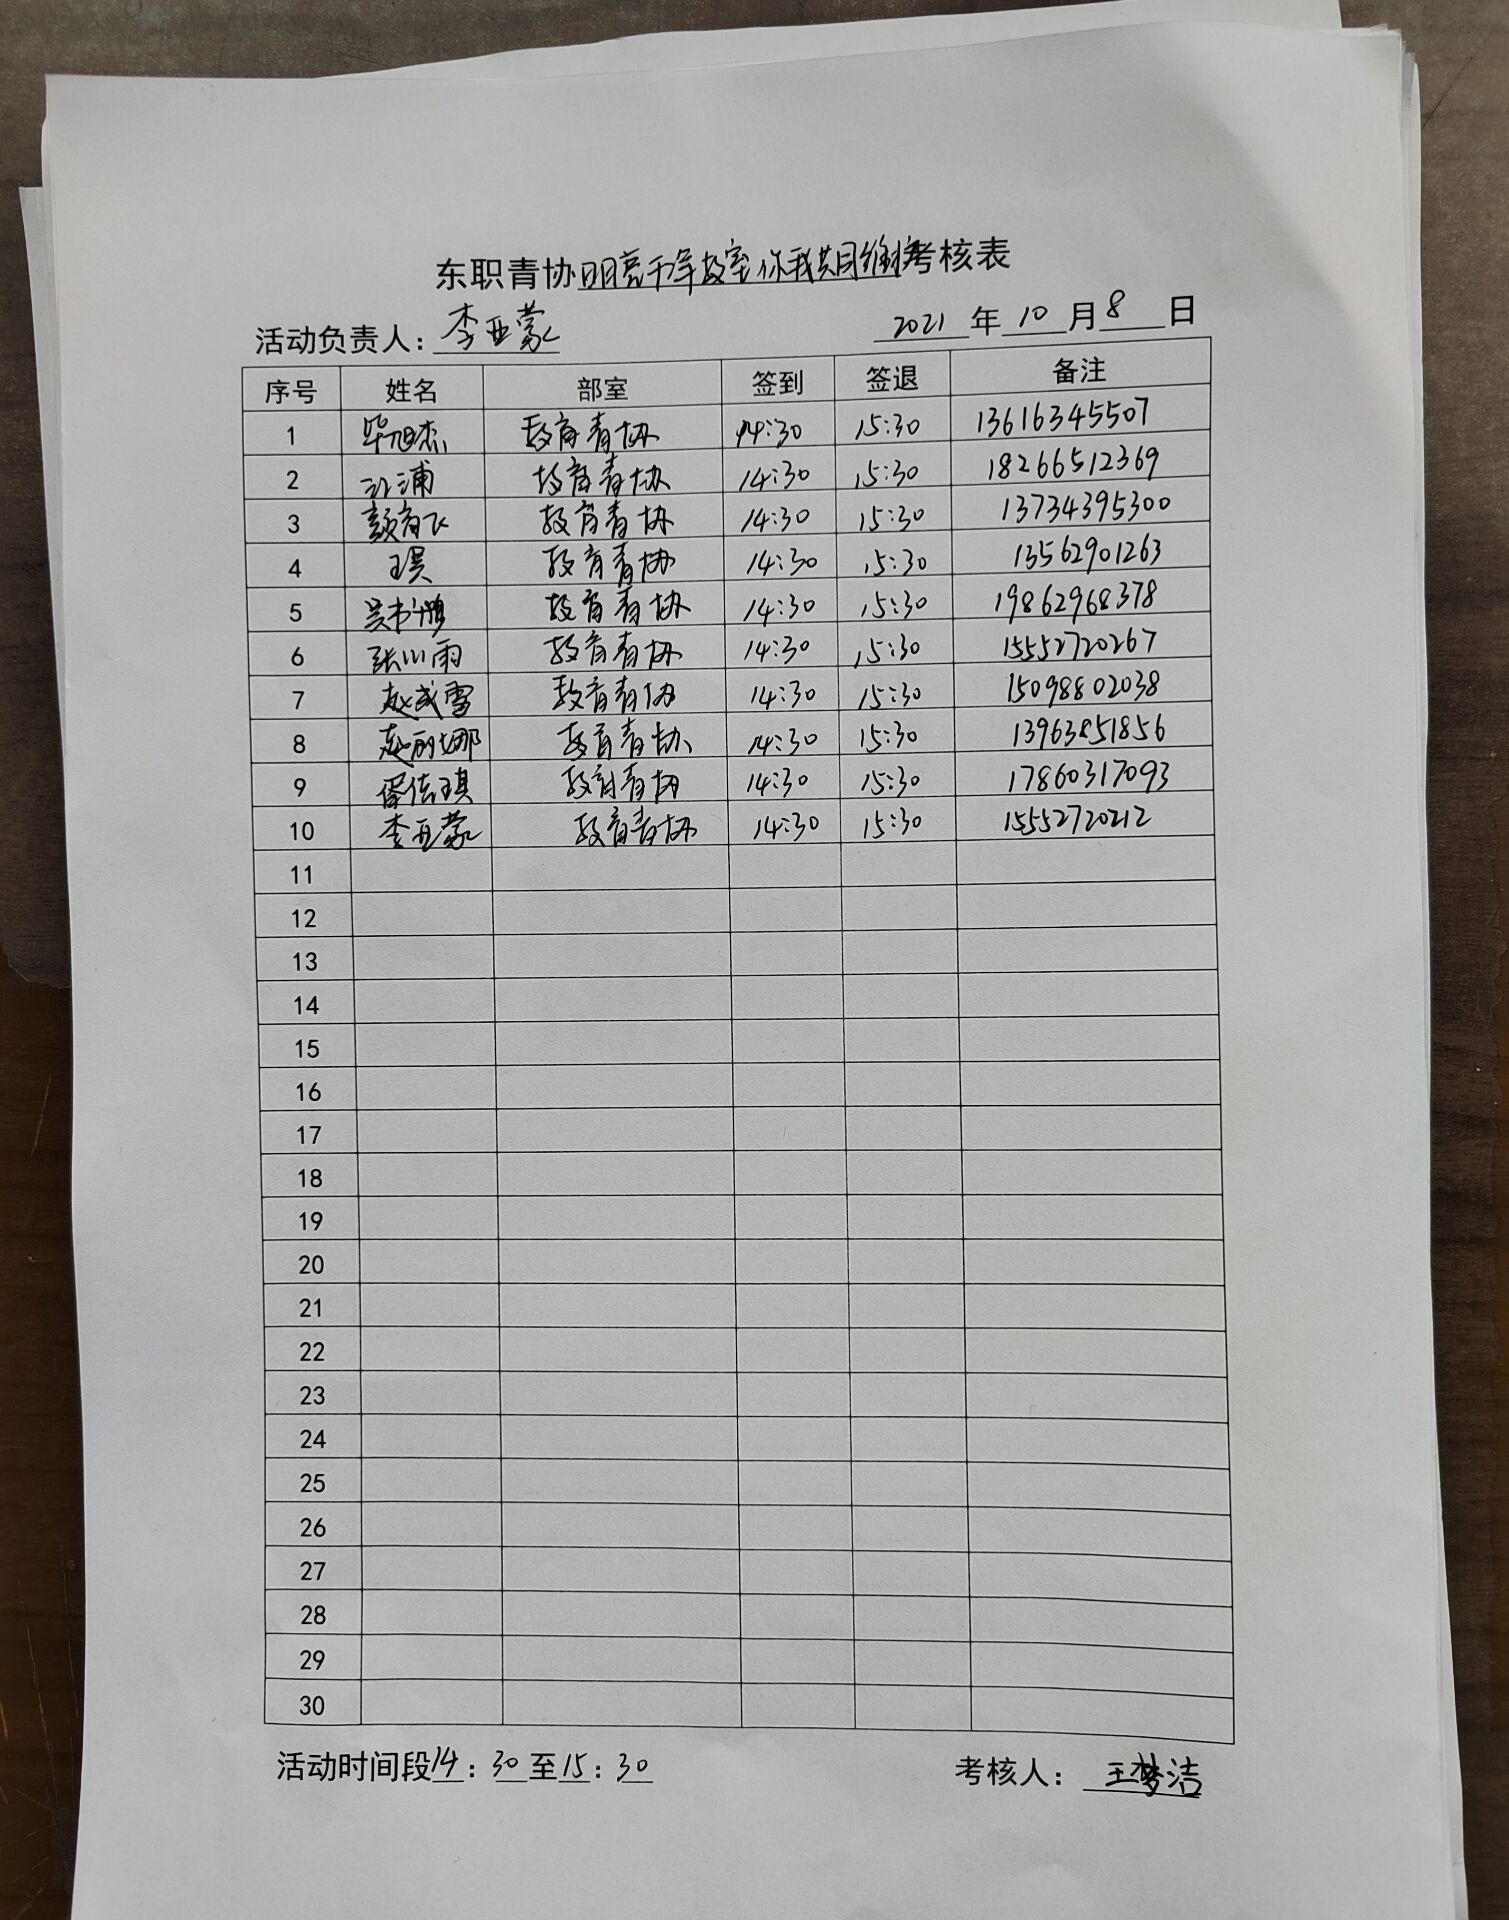 东职青协明亮干净教室你我共同维护考核表
活动负责人：李亚蒙 2021年10月8日
序号 姓名 部室 签到 签退 备注
1 毕旭杰 教育青协 14:30 15:30 13616345507
2 江浦 教育青协 14:30 15:30 18266512369
3 颜育飞 教育青协 14:30 15:30 13734395300
4 王昊 教育青协 14:30 15:30 13562901263
5 教育青协 14:30 15:30 19862968378
6 张小雨 教育青协 14:30 15:30 15552720267
7 教育青协 14:30 15:30 15098802038
8 赵丽娜 教育青协 14:30 15:30 13963851856
9 教育青协 14:30 15:30 17860317093
10 李亚蒙 教育青协 14:30 15:30 15552720212
11
12
13
14
15
16
17
18
19
20
21
22
23
24
25
26
27
28
29
30
活动时间段14：30至15：30 考核人：王梦洁